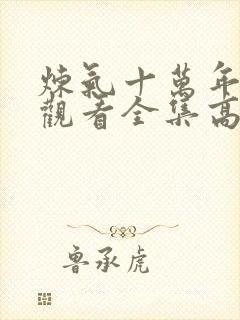 煉氣十萬年
觀看全集高
魯承虎